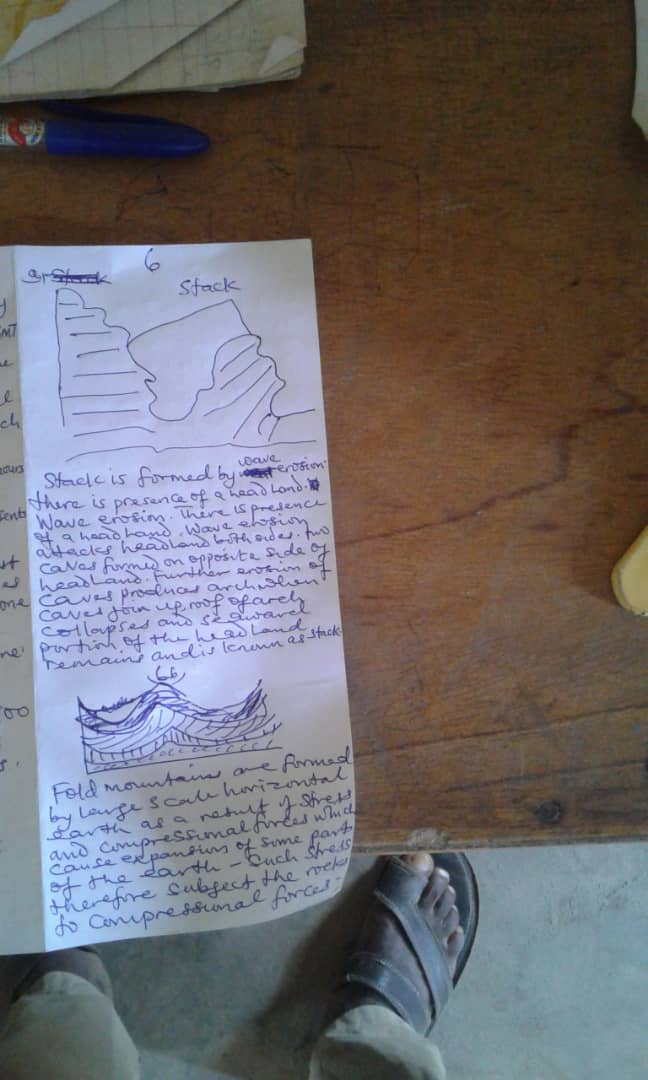 6
a, Stack
Stack
Stack is formed by wave erosion.
there is presence of a head land.
Wave erosion. There is presence
of a head land. Wave erosion
attacks headland both sides. two
caves formed on opposite side of
headland. Further erosion of
caves produces arch when
caves join up roof of arch
collapses and seaward
portion of the headland
remains and is known as stack.
6b
Fold mountains are formed
by large scale horizontal
earth as a result of stress
and compressional forces which
cause expansion of some part
of the earth - Such stress
therefore subject the rocks
to compressional forces.